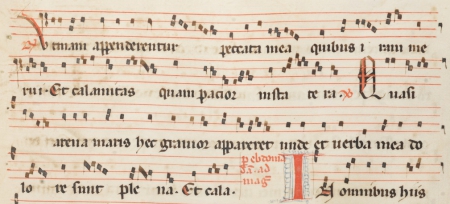 ℣. Utinam appenderentur peccata mea quibus iram me
rui. Et calamitas quam pacior insta te ra. ℣. Quasi
arena maris hec gravior appareret unde et verba mea do
lo re sunt ple na. Et cala. In omnibus hiis